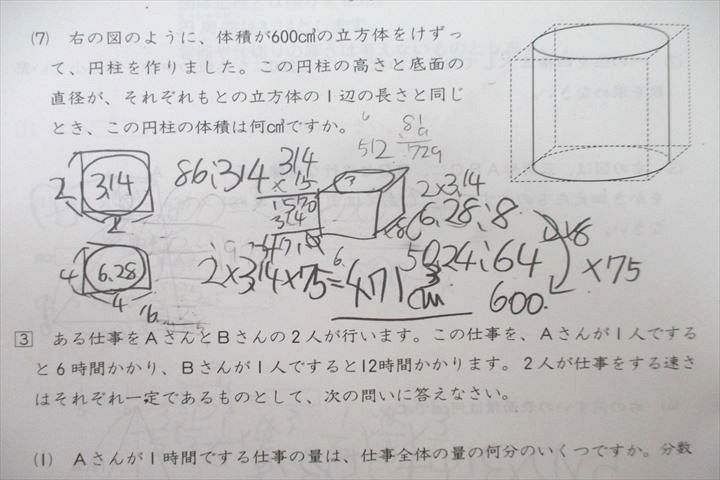 (7) 右の図のように、体積が600㎤の立方体をけずっ
て、円柱を作りました。この円柱の高さと底面の
直径が、それぞれもとの立方体の1辺の長さと同じ
とき、この円柱の体積は何㎤ですか。
512 729
2 3.14 2
86:314
314
×15
1570
314
2×3.14
6.28:8
×8
5024:64
×75
600
4 6.28 4
2×3.14×75=471cm³
3 ある仕事をAさんとBさんの2人が行います。この仕事を、Aさんが1人でする
と6時間かかり、Bさんが1人ですると12時間かかります。2人が仕事をする速さ
はそれぞれ一定であるものとして、次の問いに答えなさい。
(1) Aさんが1時間でする仕事の量は、仕事全体の量の何分のいくつですか。分数